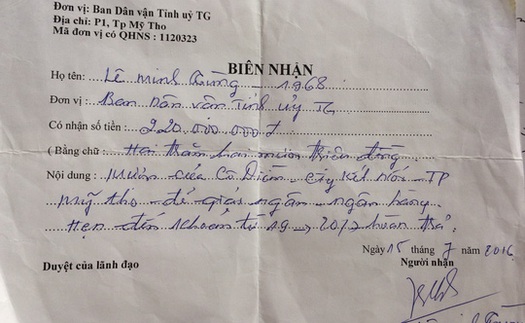 Đơn vị: Ban Dân vận Tỉnh uỷ TG
Địa chỉ: P1, Tp Mỹ Tho
Mã đơn vị có QHNS : 1120323
BIÊN NHẬN
Họ tên: Lê Minh Hùng 1968
Đơn vị : Ban Dân vận Tỉnh ủy TG
Có nhận số tiền : 220.000.000đ
( Bằng chữ : Hai trăm hai mươi triệu đồng
Nội dung : Mượn của Cô Diễm cty Kết Nối TP
Mỹ Tho để giao ngân ngân hàng
Hẹn đến khoản từ 19 → 20/7 hoàn trả.
Ngày 15 tháng 7 năm 2016
Duyệt của lãnh đạo
Người nhận